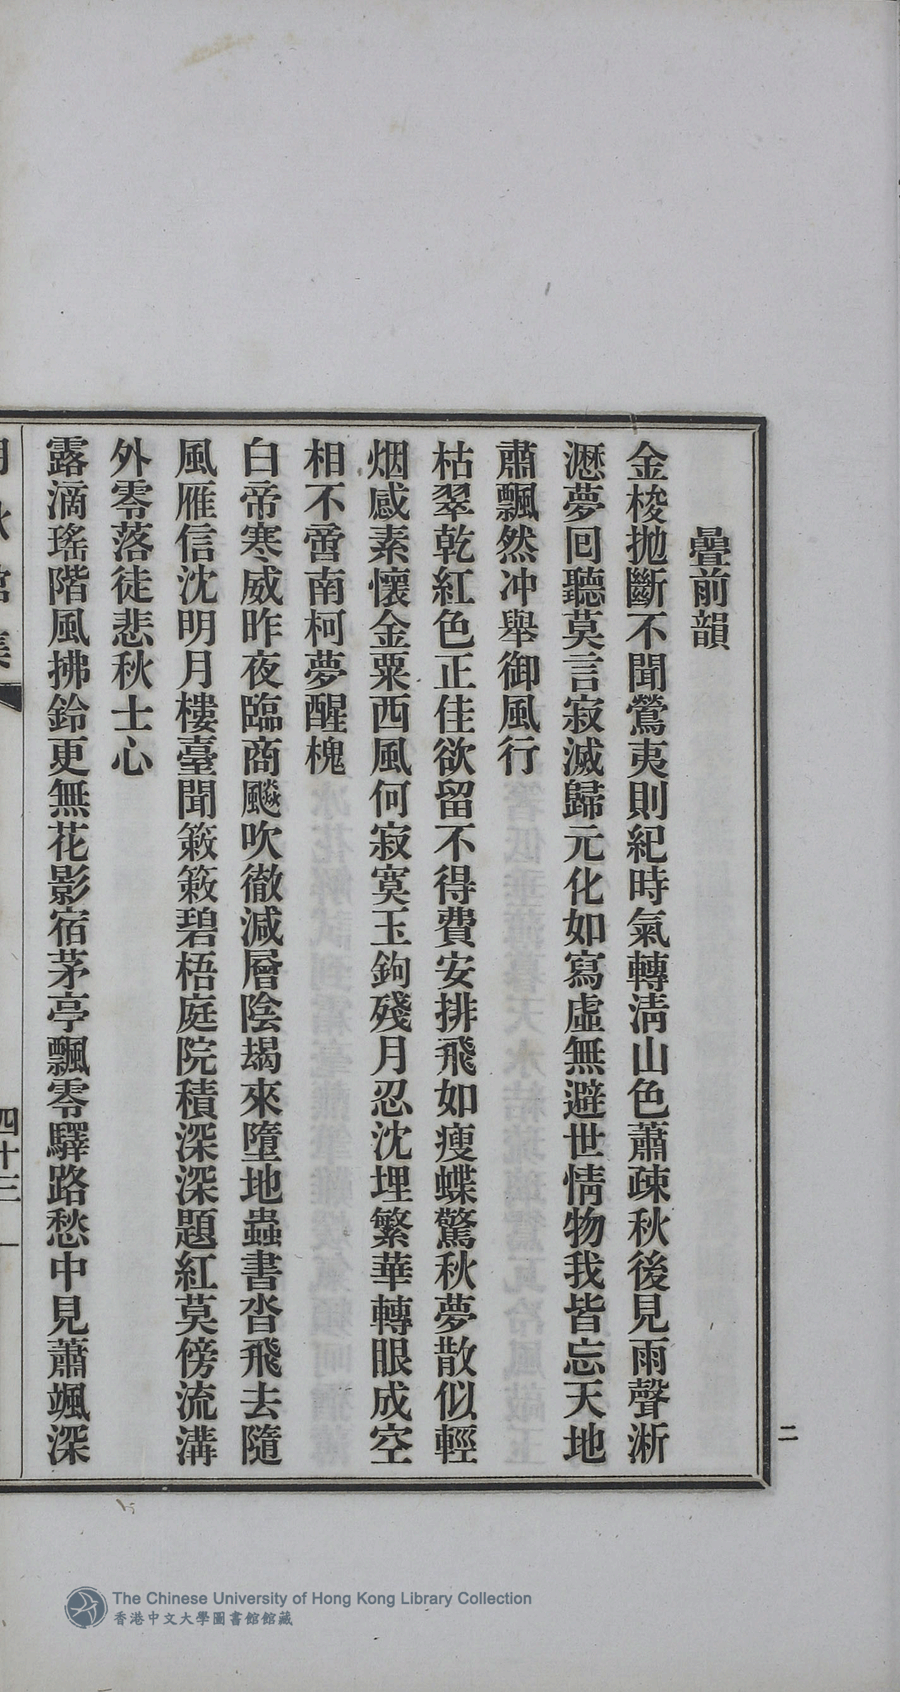 疊前韻
金梭拋斷不聞鶯夷則紀時氣轉淸山色蕭疎秋後見雨聲淅
瀝夢回聽莫言寂滅歸元化如寫虛無避世情物我皆忘天地
肅飄然冲舉御風行
枯翠乾紅色正佳欲留不得費安排飛如瘦蝶驚秋夢散似輕
烟感素懷金粟西風何寂寞玉鉤殘月忍沈埋繁華轉眼成空
相不啻南柯夢醒槐
白帝寒威昨夜臨商飇吹徹減層陰朅來墮地蟲書沓飛去隨
風雁信沈明月樓臺聞簌簌碧梧庭院積深深題紅莫傍流溝
外零落徒悲秋士心
露滴瑤階風拂鈴更無花影宿茅亭飄零驛路愁中見蕭颯深
四十三
二
The Chinese University of Hong Kong Library Collection
香港中文大學圖書館館藏